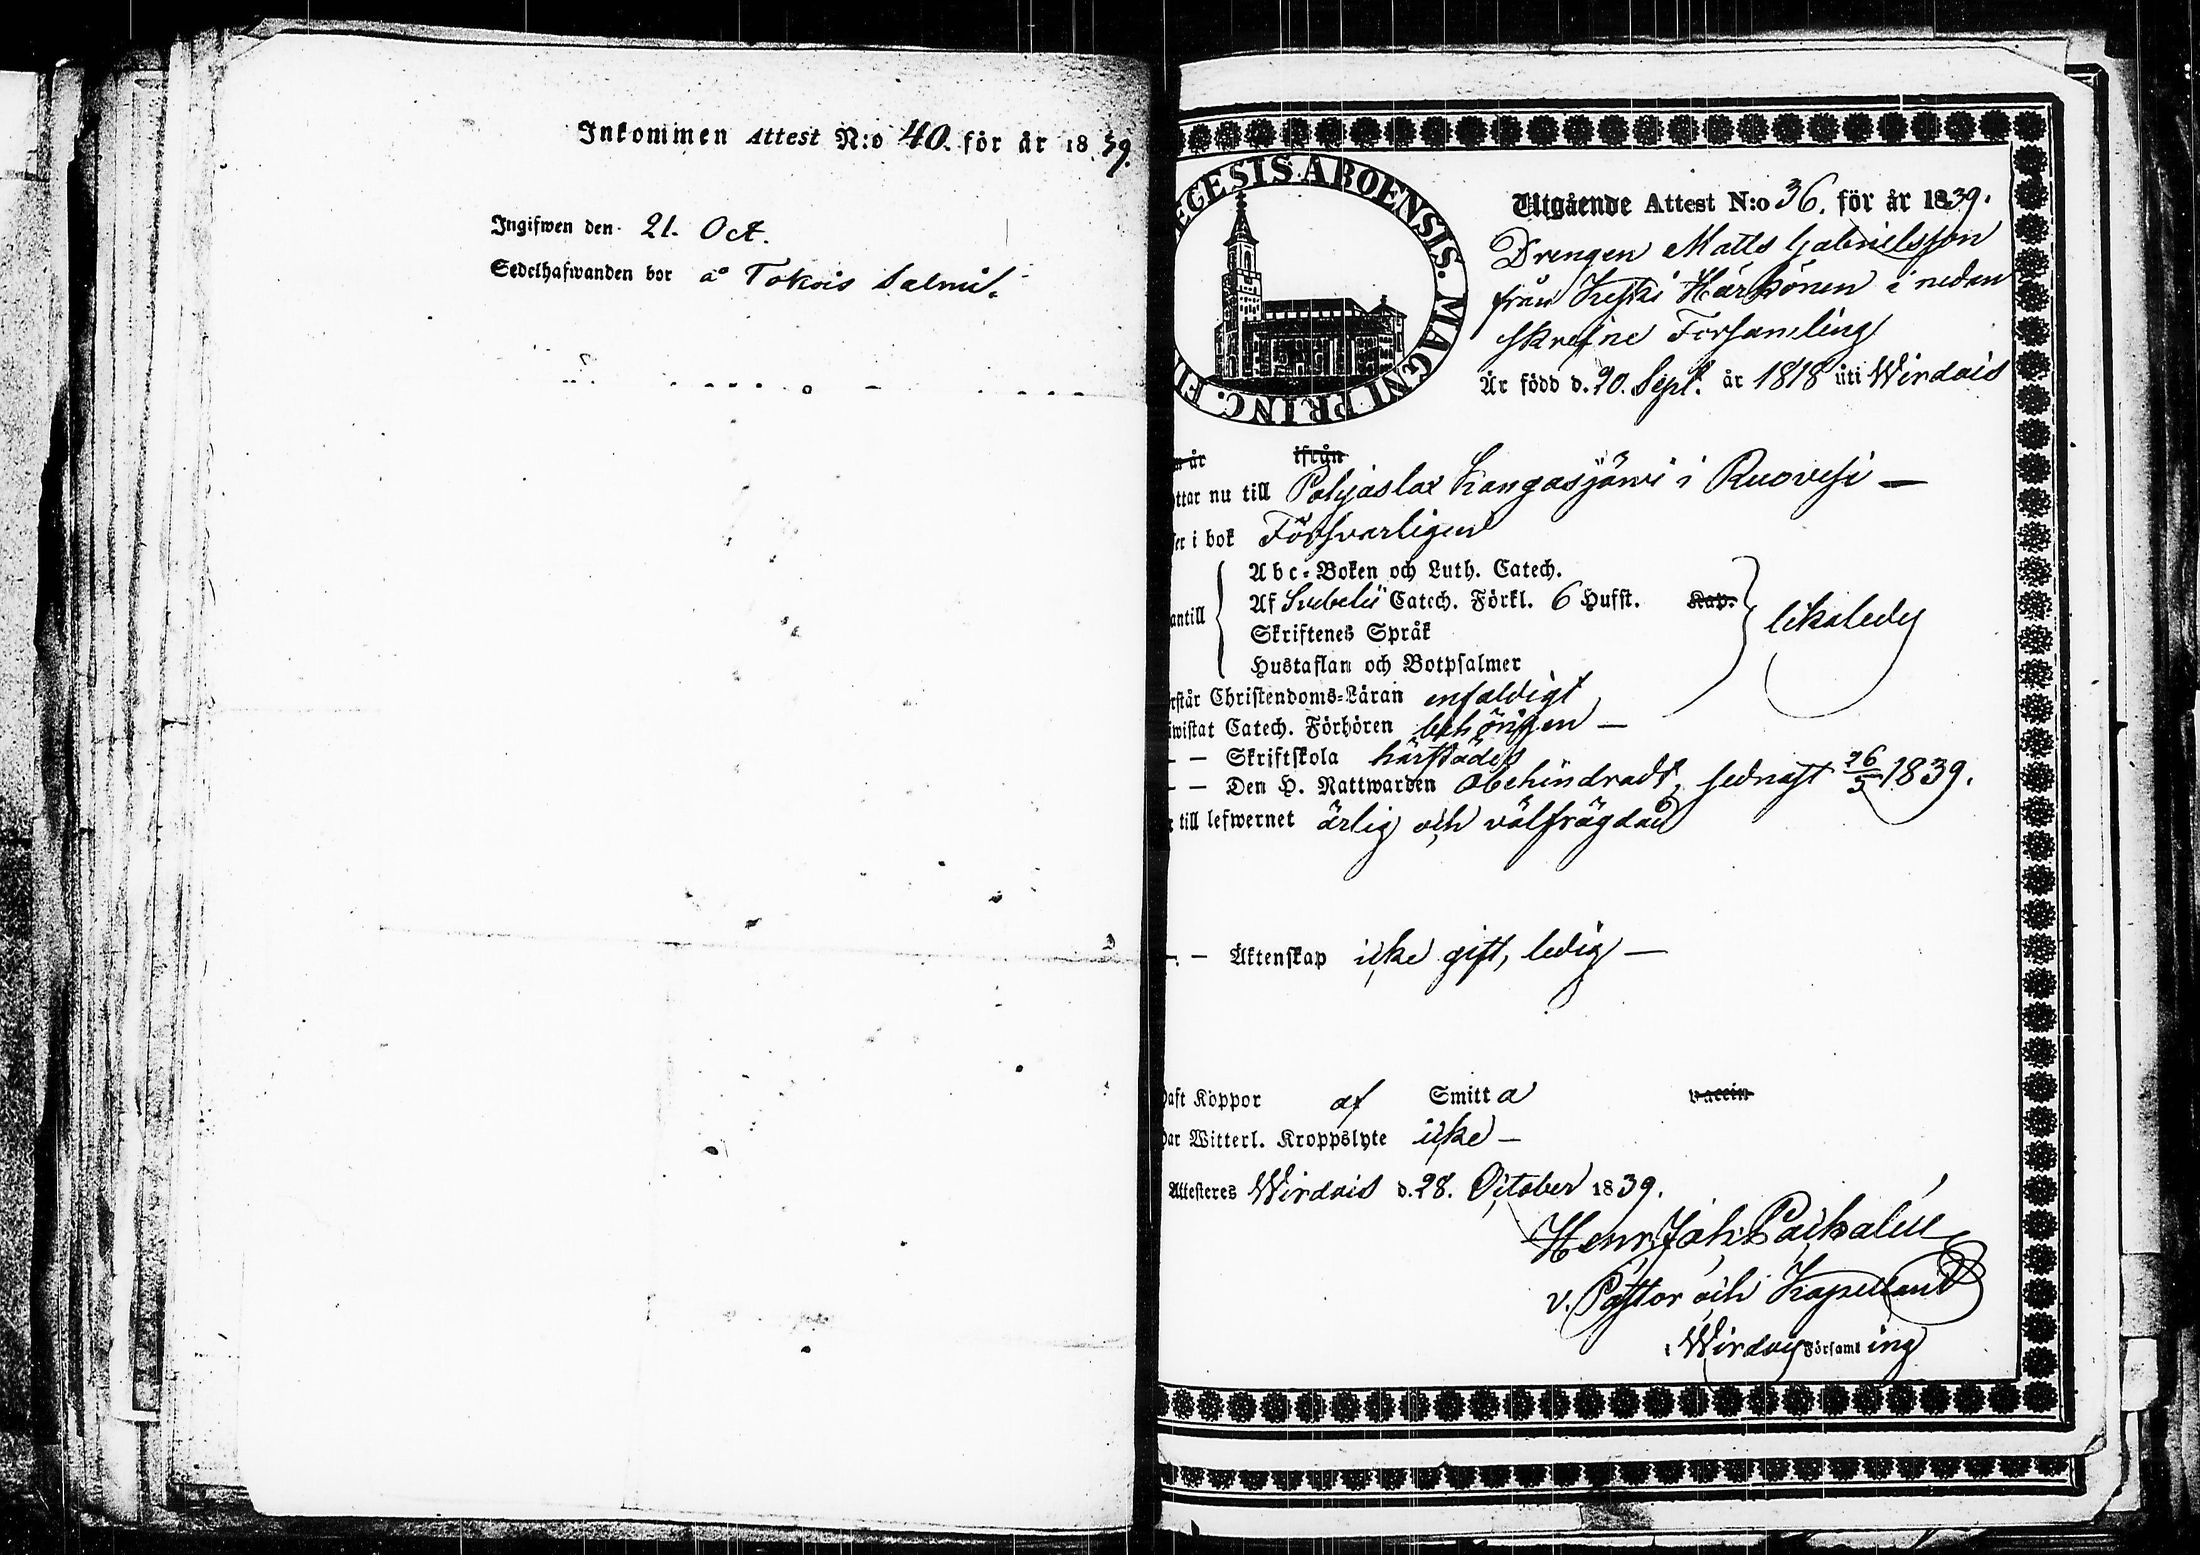 Inkommen Attest N:o 40. för år 1839.
Ingifwen den 21. Oct.
Sedelhafwanden bor å Tokois Salmis
EGESIS ABOENSIS. MAGNI PRINC. FI
Utgående Attest N:o 36. för år 1839.
Drengen Matts Gabrielsson
från Keski Härkönen i nedan
skrefne Forsamling
Är född d. 20. Sept. år 1818 uti Wirdois
n år ifrån
ttar nu till Pohjaslax Kangasjärwi i Ruovesi —
ser i bok Försvarligen
antill
Abc-Boken och Luth. Catech.
Af Svebelii Catech. Förkl. 6 Hufst. Kap.
Skriftenes Språk
Hustaflan och Botpsalmer
likaledes
rstår Christendoms-Läran enfaldigt
iwistat Catech. Förhören behörigen —
— — Skriftskola härstädes
— — Den H. Nattwarden obehindradt, sednast 26/5 1839.
r till lefwernet ärlig och välfrägdad
— Äktenskap icke gift, ledig —
Haft Köppor af Smitta vaccin
Har Witterl. Kroppslyte icke —
Attesteres Wirdois d. 28. October 1839.
Henr. Joh.
v. Pastor och Kapellan
i Wirdois Församling